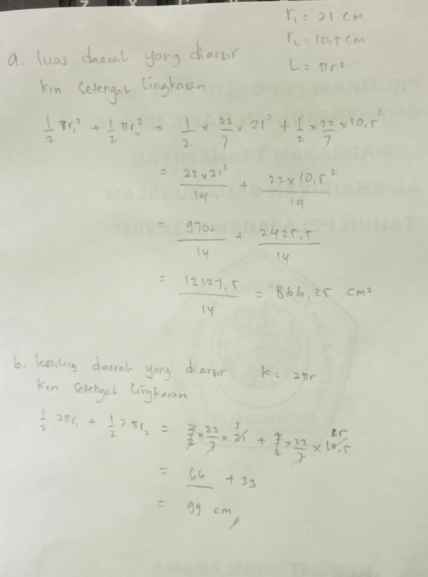 r₁ = 21 cm
r₂ = 10,5 cm
L = πr²
a. luas daerah yang diarsir
krn setengah lingkaran
½ πr₁² + ½ πr₂² = ½ × 22/7 × 21² + ½ × 22/7 × 10,5²
= 22 × 21²/14 + 22 × 10,5²/14
= 9702/14 + 2425,5/14
= 12127,5/14 = 866,25 cm²
b. keliling daerah yang diarsir k = 2πr
krn setengah lingkaran
½ 2πr₁ + ½ 2πr₂ = 2/2 × 22/7 × 21 + 2/2 × 22/7 × 10,5
= 66 + 33
= 99 cm